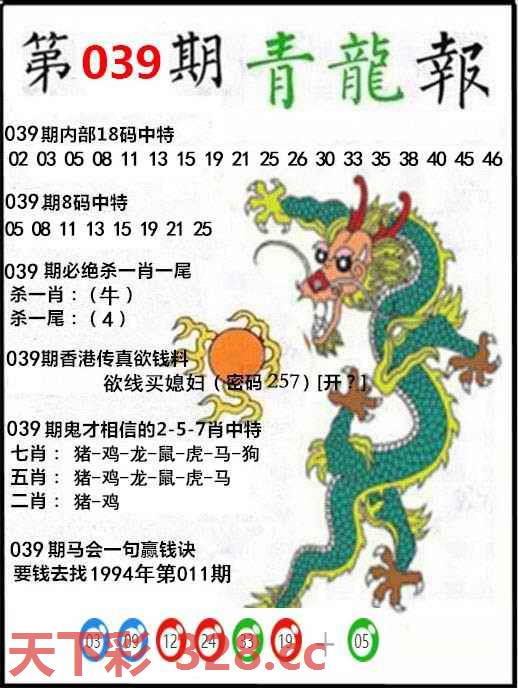 第039期 青龍報
039期内部18码中特
02 03 05 08 11 13 15 19 21 25 26 30 33 35 38 40 45 46
039期8码中特
05 08 11 13 15 19 21 25
039 期必绝杀一肖一尾
杀一肖：（牛）
杀一尾：（4）
039期香港传真欲钱料
欲线买媳妇（密码257）[开？]
039期鬼才相信的2-5-7肖中特
七肖： 猪-鸡-龙-鼠-虎-马-狗
五肖： 猪-鸡-龙-鼠-虎-马
二肖： 猪-鸡
039期马会一句赢钱诀
要钱去找1994年第011期
03 09 12 24 33 19 + 05
天下彩 328.cc